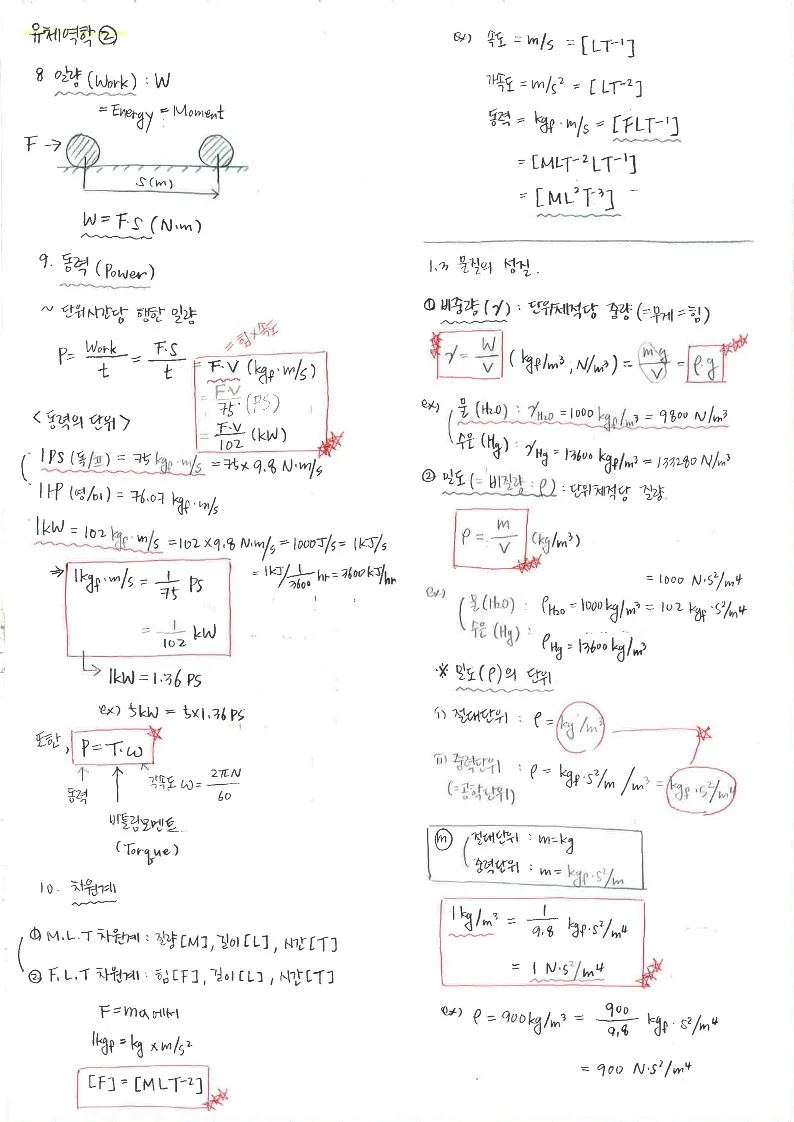 유체역학 ②
8 일량 (Work) : W
= Energy = Moment
F →
S(m)
W = F·S (N·m)
9. 동력 (Power)
~ 단위시간당 행한 일량
= 힘 × 속도
P = Work/t = F·S/t = F·V (kgf·m/s)
= F·V/75 (PS)
= F·V/102 (kW)
<동력의 단위>
1PS (독/프) = 75 kgf·m/s = 75 × 9.8 N·m/s
1HP (영/미) = 76.07 kgf·m/s
1kW = 102 kgf·m/s = 102 × 9.8 N·m/s = 1000J/s = 1kJ/s
= 1kJ/(1/3600) hr = 3600 kJ/hr
⇒ 1kgf·m/s = 1/75 PS
= 1/102 kW
→ 1kW = 1.36 PS
ex) 5kW = 5×1.36 PS
또한, P = T·ω
동력
각속도 ω = 2πN/60
비틀림모멘트
(Torque)
10. 차원계
① M.L.T 차원계 : 질량[M], 길이[L], 시간[T]
② F.L.T 차원계 : 힘[F], 길이[L], 시간[T]
F = ma 에서
1kgf = kg × m/s²
[F] = [MLT-2]
ex) 속도 = m/s = [LT-1]
가속도 = m/s² = [LT-2]
동력 = kgf·m/s = [FLT-1]
= [MLT-2LT-1]
= [ML²T-3]
1.3 물질의 성질.
① 비중량(γ) : 단위체적당 중량(=무게=힘)
γ = W/V (kgf/m³, N/m³) = m·g/V = ρ·g
ex) 물(H2O) : γH2O = 1000 kgf/m³ = 9800 N/m³
수은(Hg) : γHg = 13600 kgf/m³ = 133280 N/m³
② 밀도(= 비질량 : ρ) : 단위체적당 질량.
ρ = m/V (kg/m³)
= 1000 N·s²/m4
ex) 물(H2O) : ρH2O = 1000kg/m³ = 102 kgf·s²/m4
수은(Hg) : ρHg = 13600 kg/m³
※ 밀도(ρ)의 단위
i) 절대단위 : ρ = kg/m³
ii) 중력단위 : ρ = kgf·s²/m /m³ = kgf·s²/m4
(=공학단위)
m 절대단위 : m = kg
중력단위 : m = kgf·s²/m
1kg/m³ = 1/9.8 kgf·s²/m4
= 1 N·s²/m4
ex) ρ = 900kg/m³ = 900/9.8 kgf·s²/m4
= 900 N·s²/m4